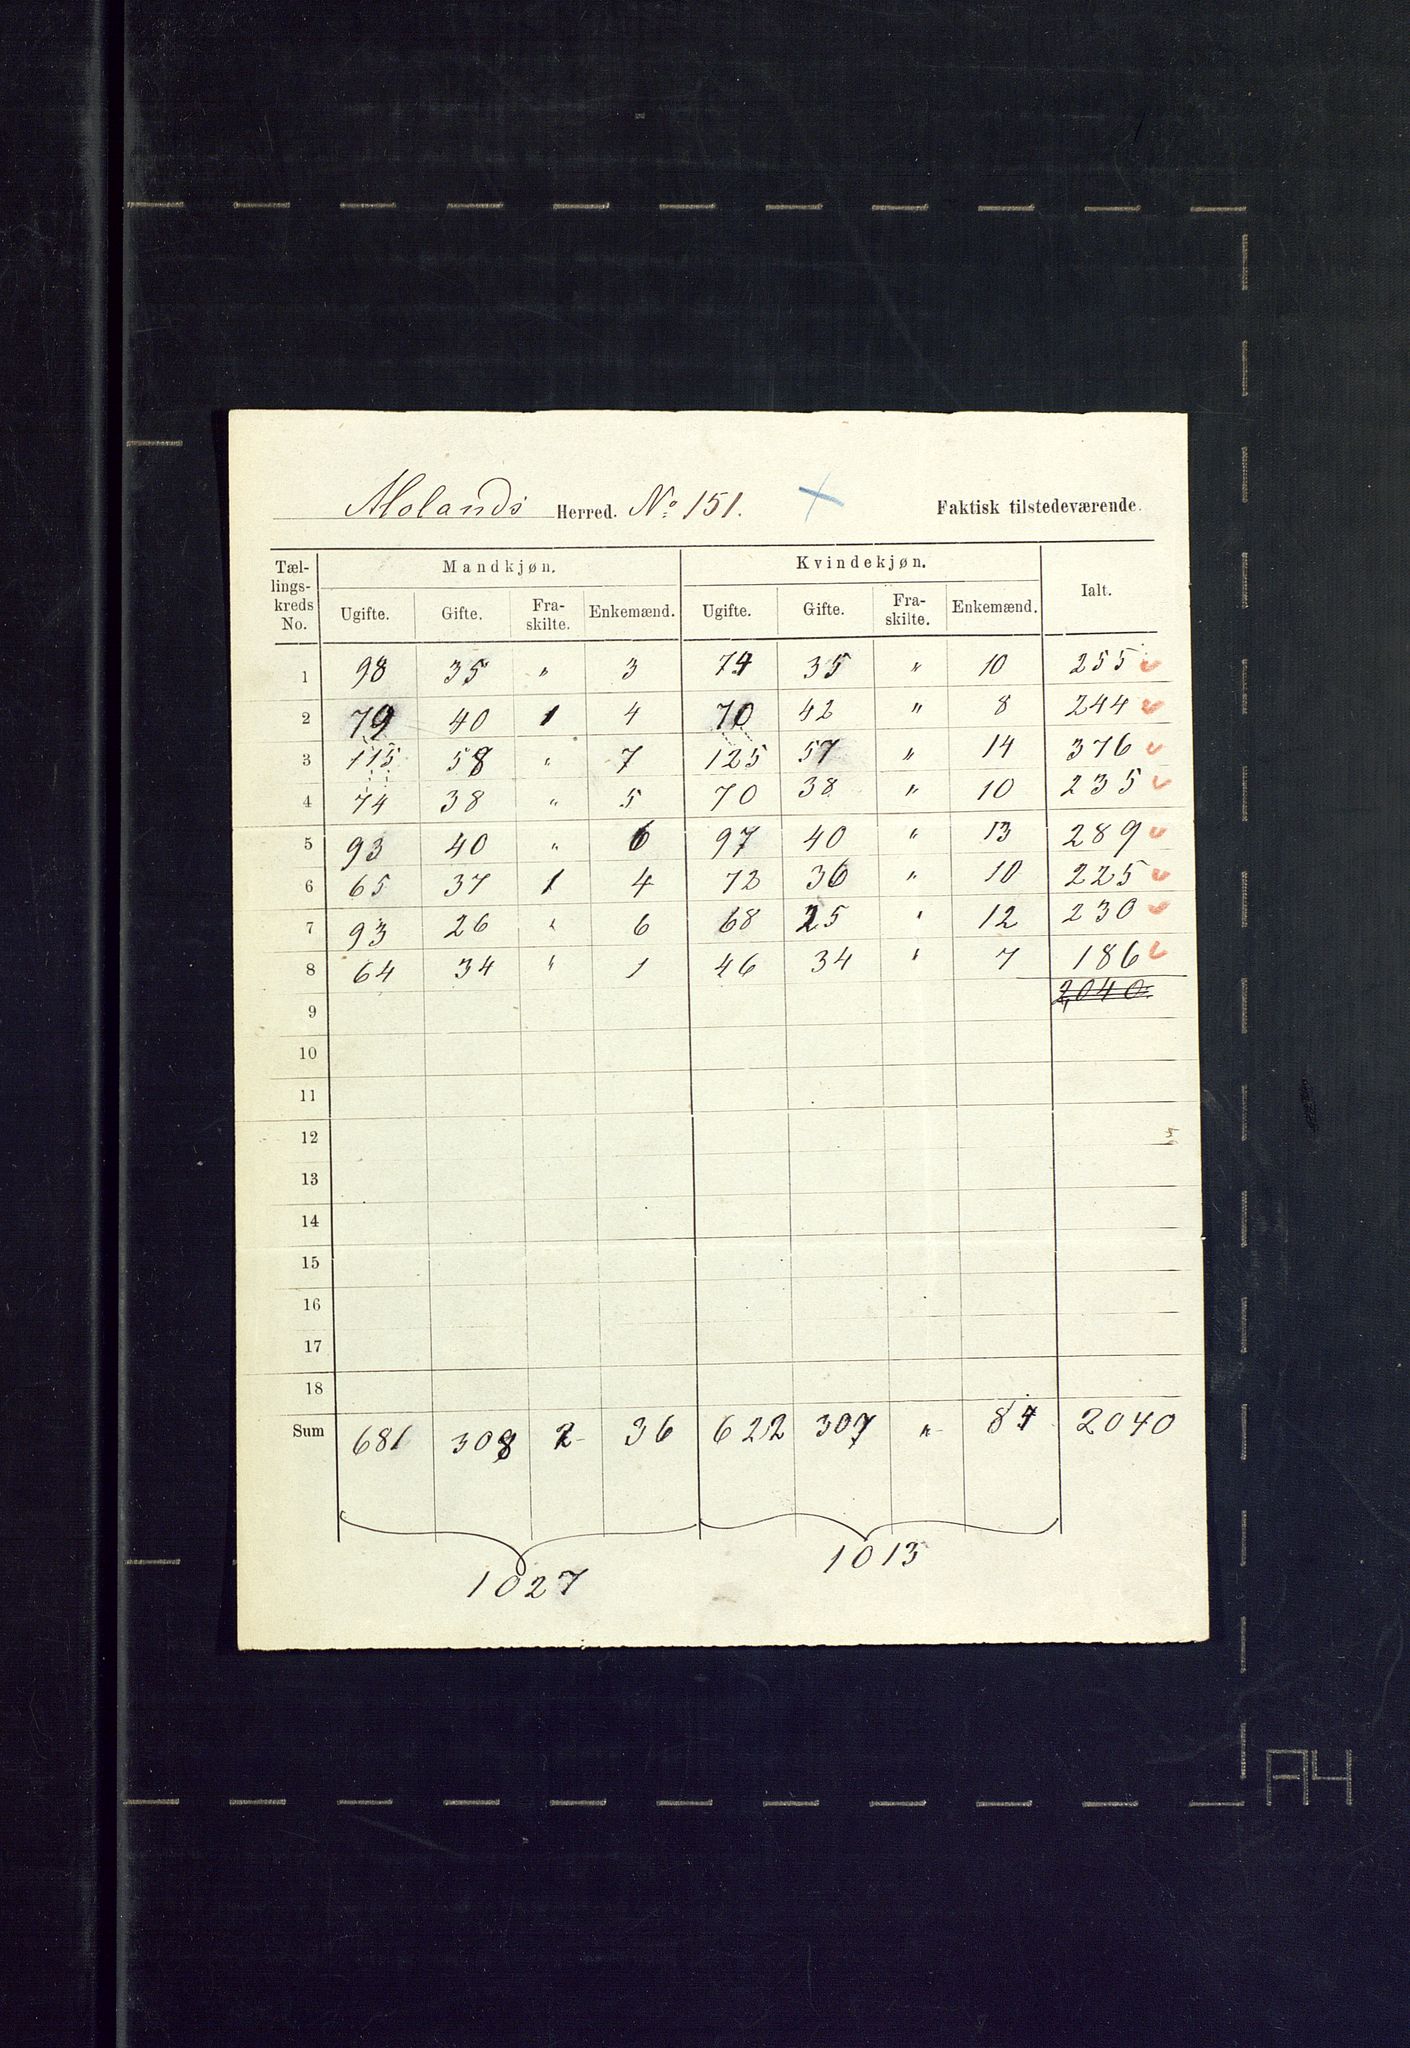 Molands Herred. No 151. Faktisk tilstedeværende.
Tæl-lings-kreds No. Mandkjøn. Kvindekjøn. Ialt.
Ugifte. Gifte. Fra-skilte. Enkemænd. Ugifte. Gifte. Fra-skilte. Enkemænd.
1 98 35 " 3 74 35 " 10 255
2 79 40 1 4 70 42 " 8 244
3 115 58 " 7 125 57 " 14 376
4 74 38 " 5 70 38 " 10 235
5 93 40 " 6 97 40 " 13 289
6 65 37 1 4 72 36 " 10 225
7 93 26 " 6 68 25 " 12 230
8 64 34 " 1 46 34 " 7 186
2,040
9
10
11
12
13
14
15
16
17
18
Sum 681 308 2 36 622 307 " 84 2040
1027 1013
A4